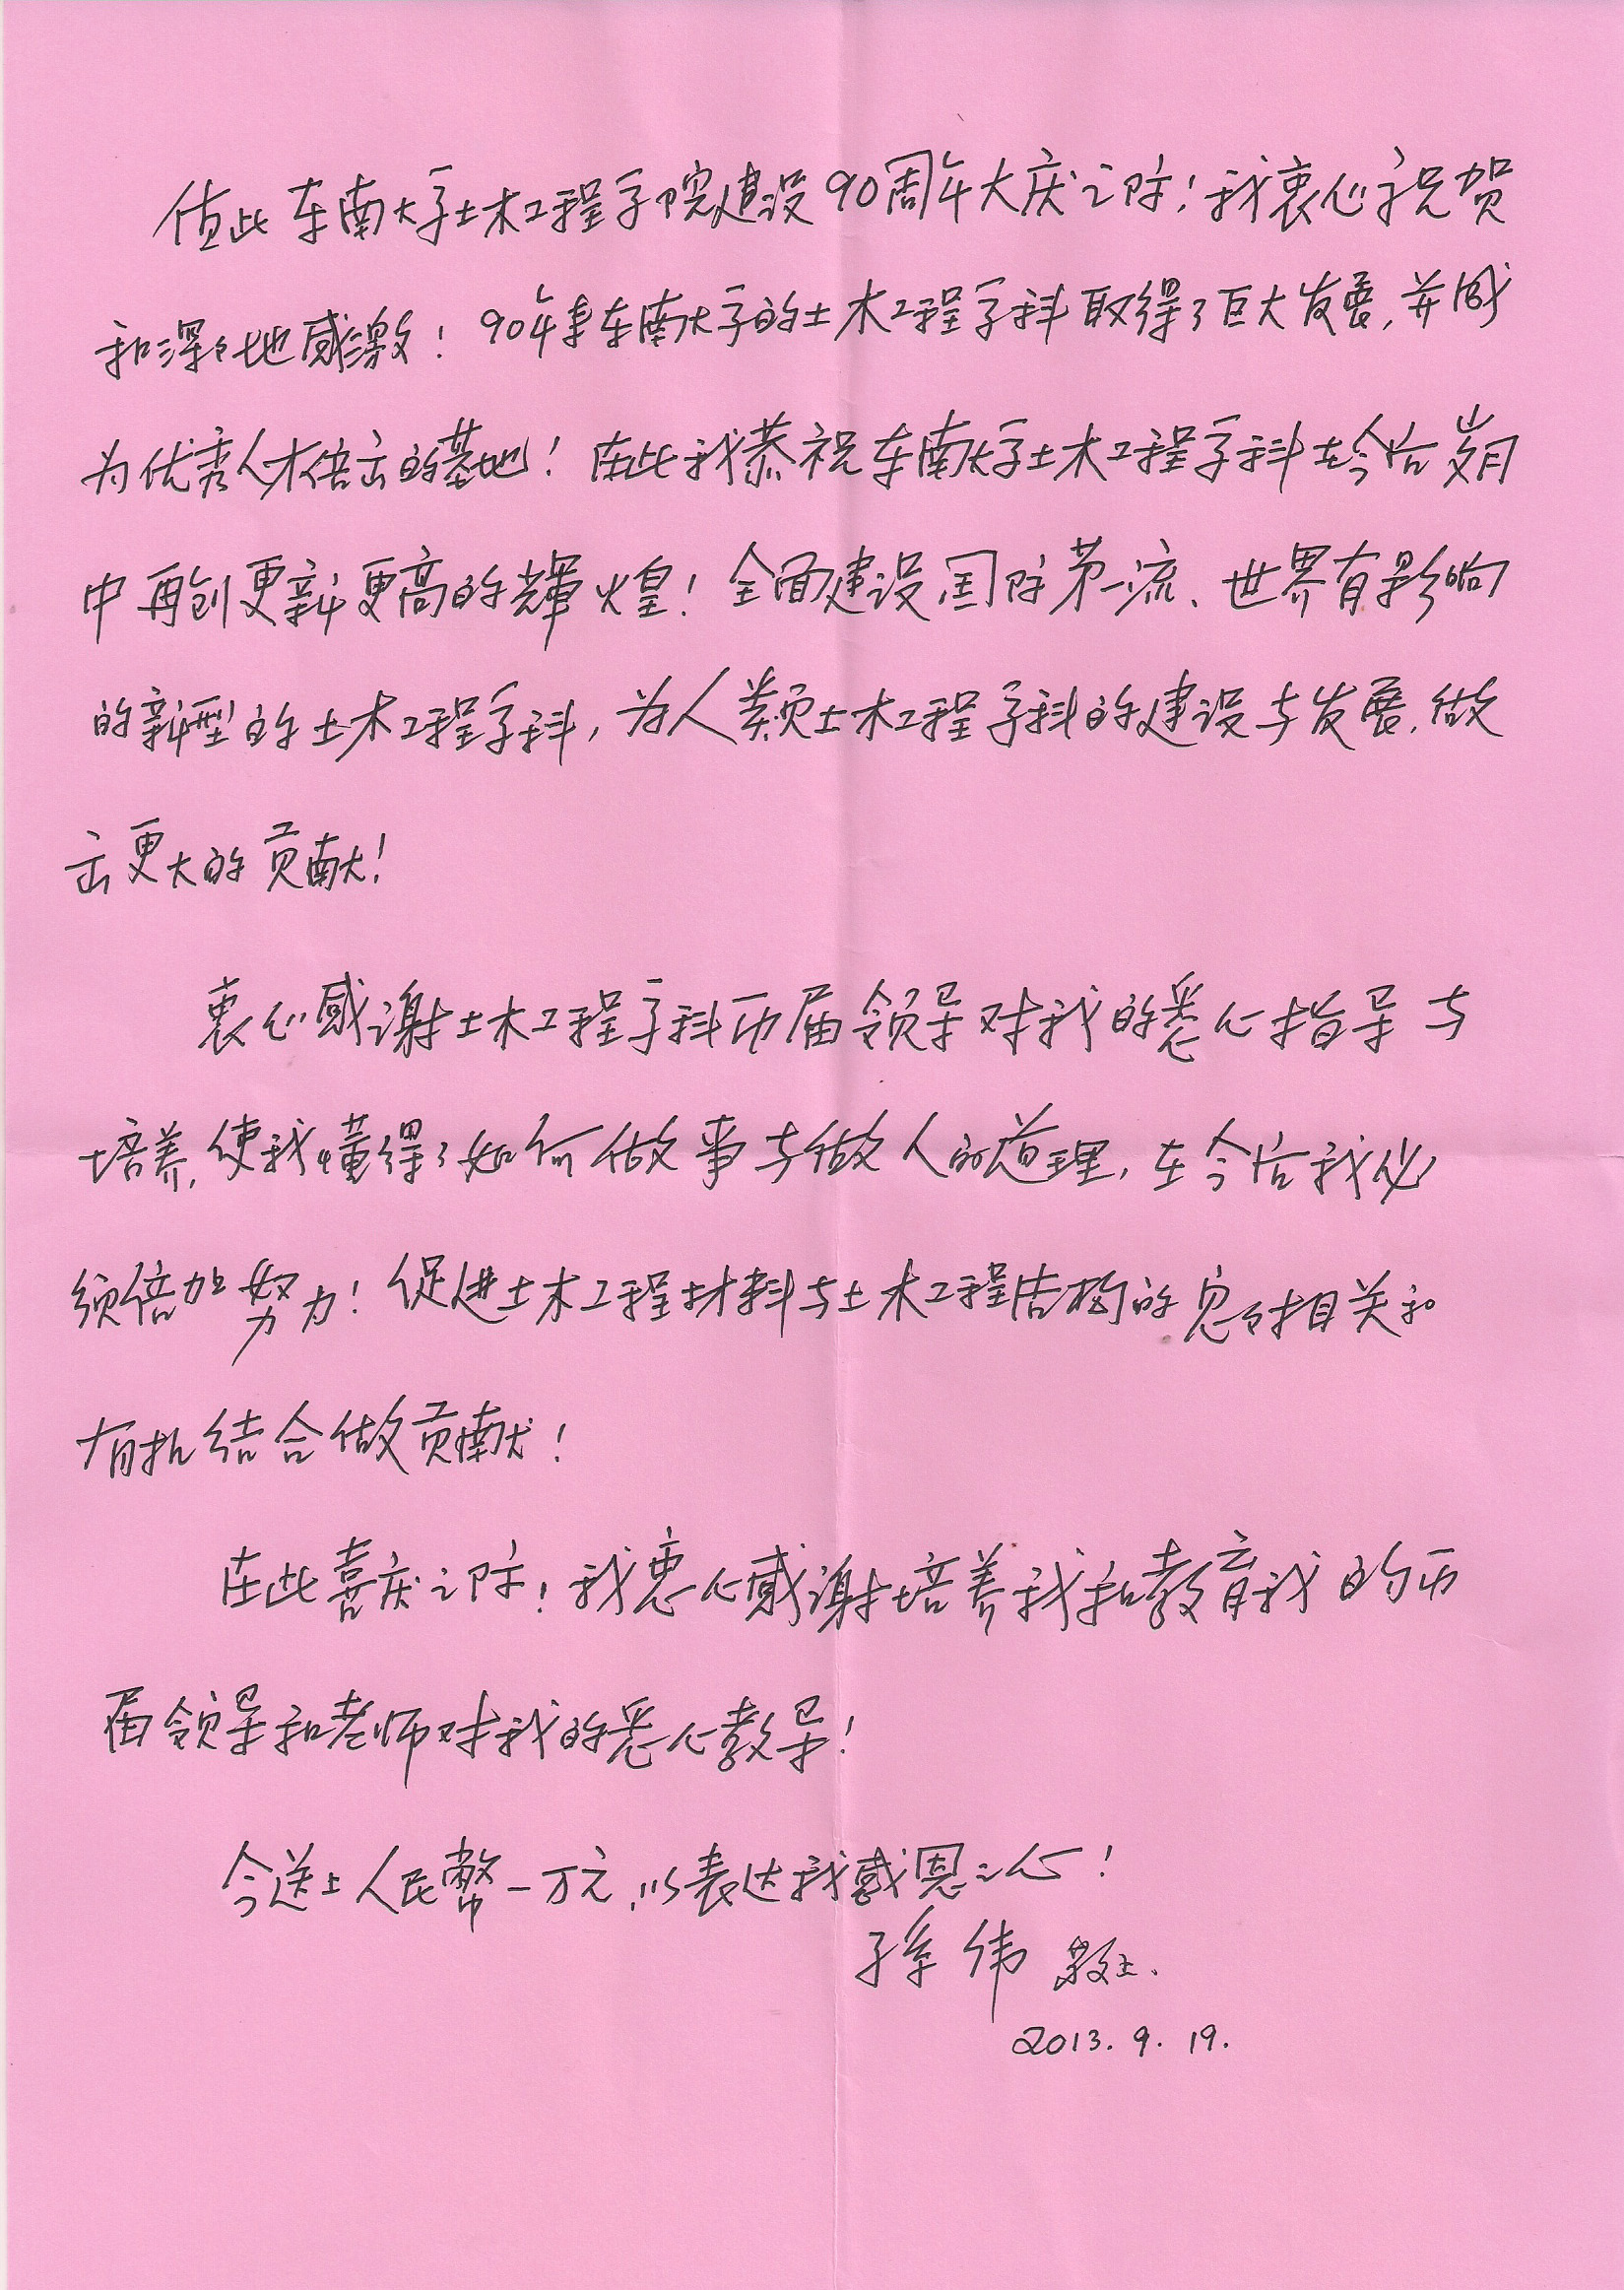 值此东南大学土木工程学院建设90周年大庆之际！我衷心祝贺
和深深地感激！90年来东南大学的土木工程学科取得了巨大发展，并成
为优秀人才倍出的基地！在此我恭祝东南大学土木工程学科在今后岁月
中再创更新更高的輝煌！全面建设国际第一流、世界有影响
的新型的土木工程学科，为人类土木工程学科的建设与发展，做
出更大的贡献！
衷心感谢土木工程学科历届领导对我的悉心指导与
培养，使我懂得了如何做事与做人的道理，在今后我必
须倍加努力！促进土木工程材料与土木工程结构的密切相关和
有机结合做贡献！
在此喜庆之际！我衷心感谢培养我和教育我的历
届领导和老师对我的悉心教导！
今送上人民幣一万元，以表达我感恩之心！
孫伟 敬上.
2013. 9. 19.